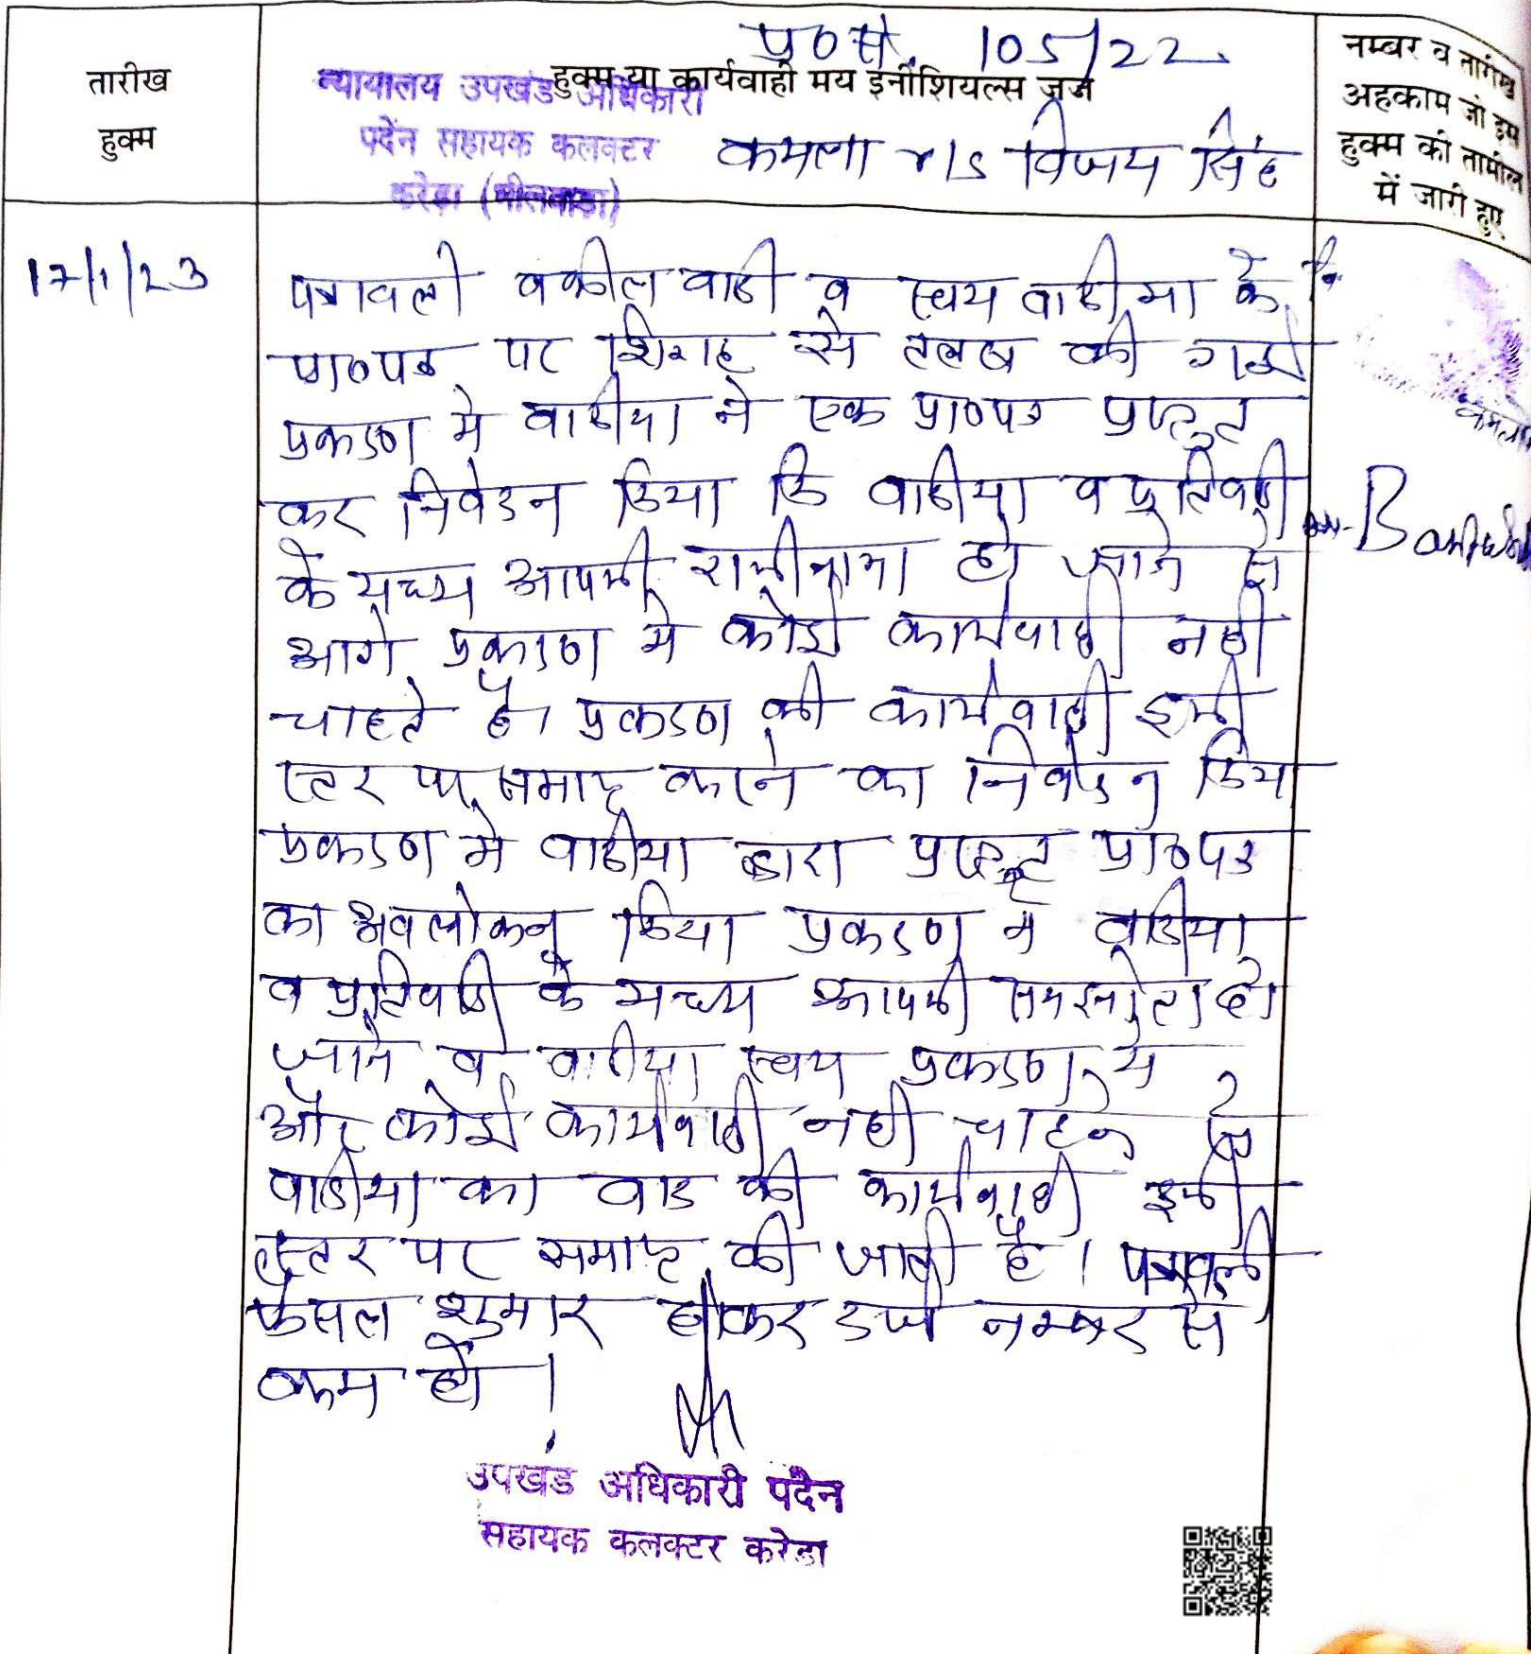 प्र०सं. 105/22
तारीख
हुक्म
हुक्म या कार्यवाही मय इनीशियल्स जज
न्यायालय उपखंड अधिकारी
पदेन सहायक कलक्टर
करेड़ा (भीलवाडा)
कमला v/s विजय सिंह
नम्बर व तारीख
अहकाम जो इस
हुक्म की तामील
में जारी हुए
17/1/23
पत्रावली वकील वादी व स्वयं वादीया के
प्रा०पत्र पर से तलब की गई
प्रकरण मे वादीया ने एक प्रा०पत्र प्रस्तुत
कर निवेदन किया कि वादीया व प्रतिवादी
के मध्य आपसी राजीनामा हो जाने से
आगे प्रकरण मे कोई कार्यवाही नही
चाहते है। प्रकरण की कार्यवाही इसी
स्तर पर समाप्त करने का निवेदन किया
प्रकरण मे वादीया द्वारा प्रस्तुत प्रा०पत्र
का अवलोकन किया प्रकरण मे वादीया
व प्रतिवादी के मध्य आपसी समझोता हो
जाने व वादीया स्वयं प्रकरण मे
और कोई कार्यवाही नही चाहने से
वादीया का वाद की कार्यवाही इसी
स्तर पर समाप्त की जाती है। पत्रावली
फैसल शुमार होकर दर्ज नम्बर से
कम हो।
उपखंड अधिकारी पदेन
सहायक कलक्टर करेडा
कमला